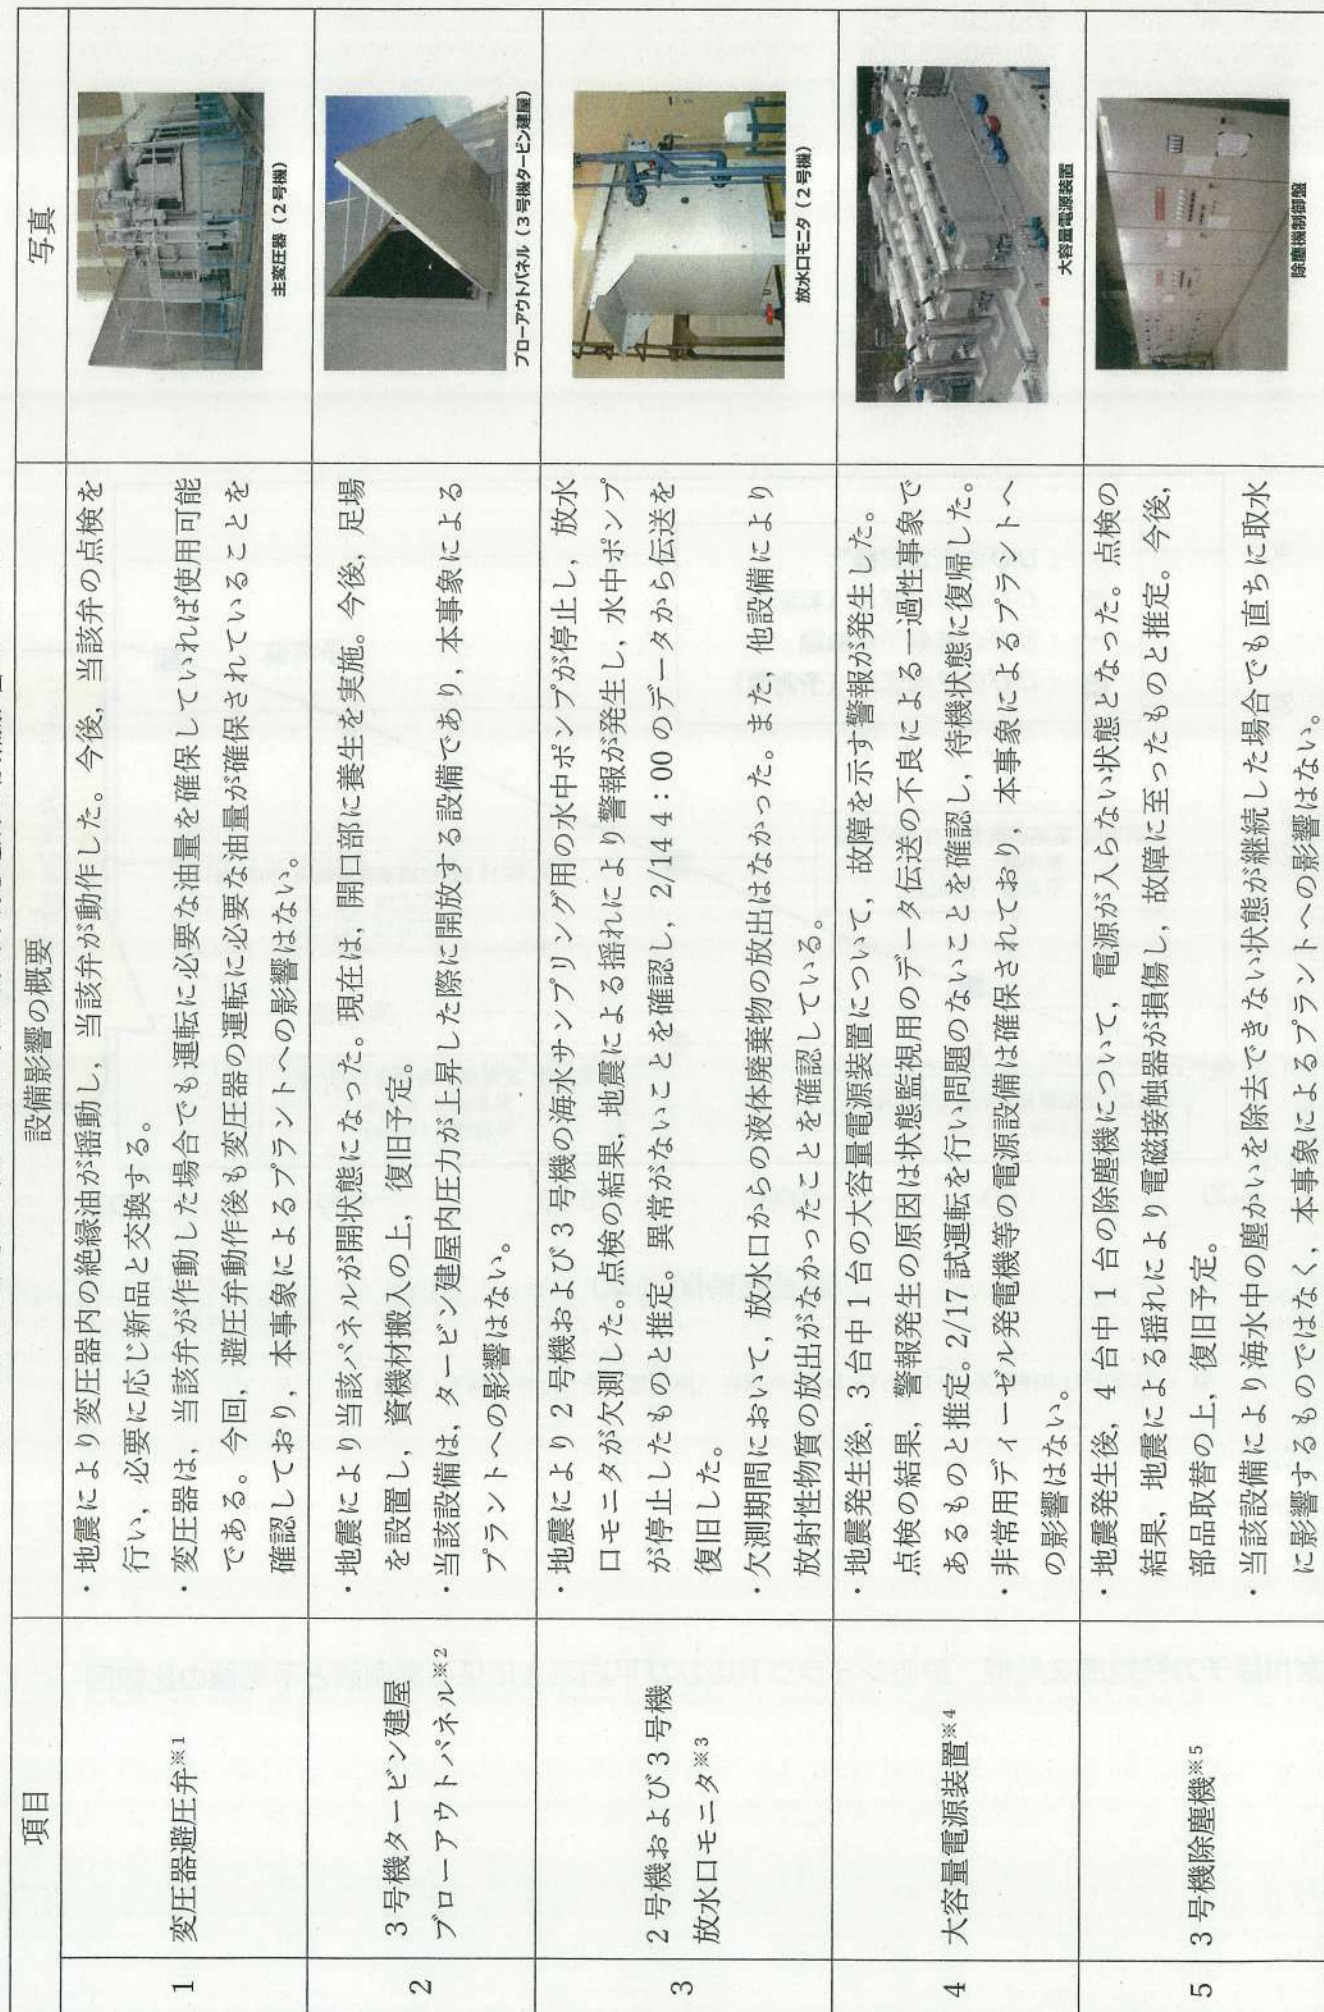 項目
設備影響の概要
写真
1
変圧器避圧弁※1
・地震により変圧器内の絶縁油が揺動し、当該弁が動作した。今後、当該弁の点検を
行い、必要に応じ新品と交換する。
・変圧器は、当該弁が作動した場合でも運転に必要な油量を確保していれば使用可能
である。今回、避圧弁動作後も変圧器の運転に必要な油量が確保されていることを
確認しており、本事象によるプラントへの影響はない。
主変圧器（2号機）
2
3号機タービン建屋
ブローアウトパネル※2
・地震により当該パネルが開状態になった。現在は、開口部に養生を実施。今後、足場
を設置し、資機材搬入の上、復旧予定。
・当該設備は、タービン建屋内圧力が上昇した際に開放する設備であり、本事象による
プラントへの影響はない。
ブローアウトパネル（3号機タービン建屋）
3
2号機および3号機
放水口モニタ※3
・地震により2号機および3号機の海水サンプリング用の水中ポンプが停止し、放水
口モニタが欠測した。点検の結果、地震による揺れにより警報が発生し、水中ポンプ
が停止したものと推定。異常がないことを確認し、2/14 4：00のデータから伝送を
復旧した。
・欠測期間において、放水口からの液体廃棄物の放出はなかった。また、他設備により
放射性物質の放出がなかったことを確認している。
放水口モニタ（2号機）
4
大容量電源装置※4
・地震発生後、3台中1台の大容量電源装置について、故障を示す警報が発生した。
点検の結果、警報発生の原因は状態監視用のデータ伝送の不良による一過性事象で
あるものと推定。2/17試運転を行い問題のないことを確認し、待機状態に復帰した。
・非常用ディーゼル発電機等の電源設備は確保されており、本事象によるプラントへ
の影響はない。
大容量電源装置
5
3号機除塵機※5
・地震発生後、4台中1台の除塵機について、電源が入らない状態となった。点検の
結果、地震による揺れにより電磁接触器が損傷し、故障に至ったものと推定。今後、
部品取替の上、復旧予定。
・当該設備により海水中の塵かいを除去できない状態が継続した場合でも直ちに取水
に影響するものではなく、本事象によるプラントへの影響はない。
除塵機制御盤